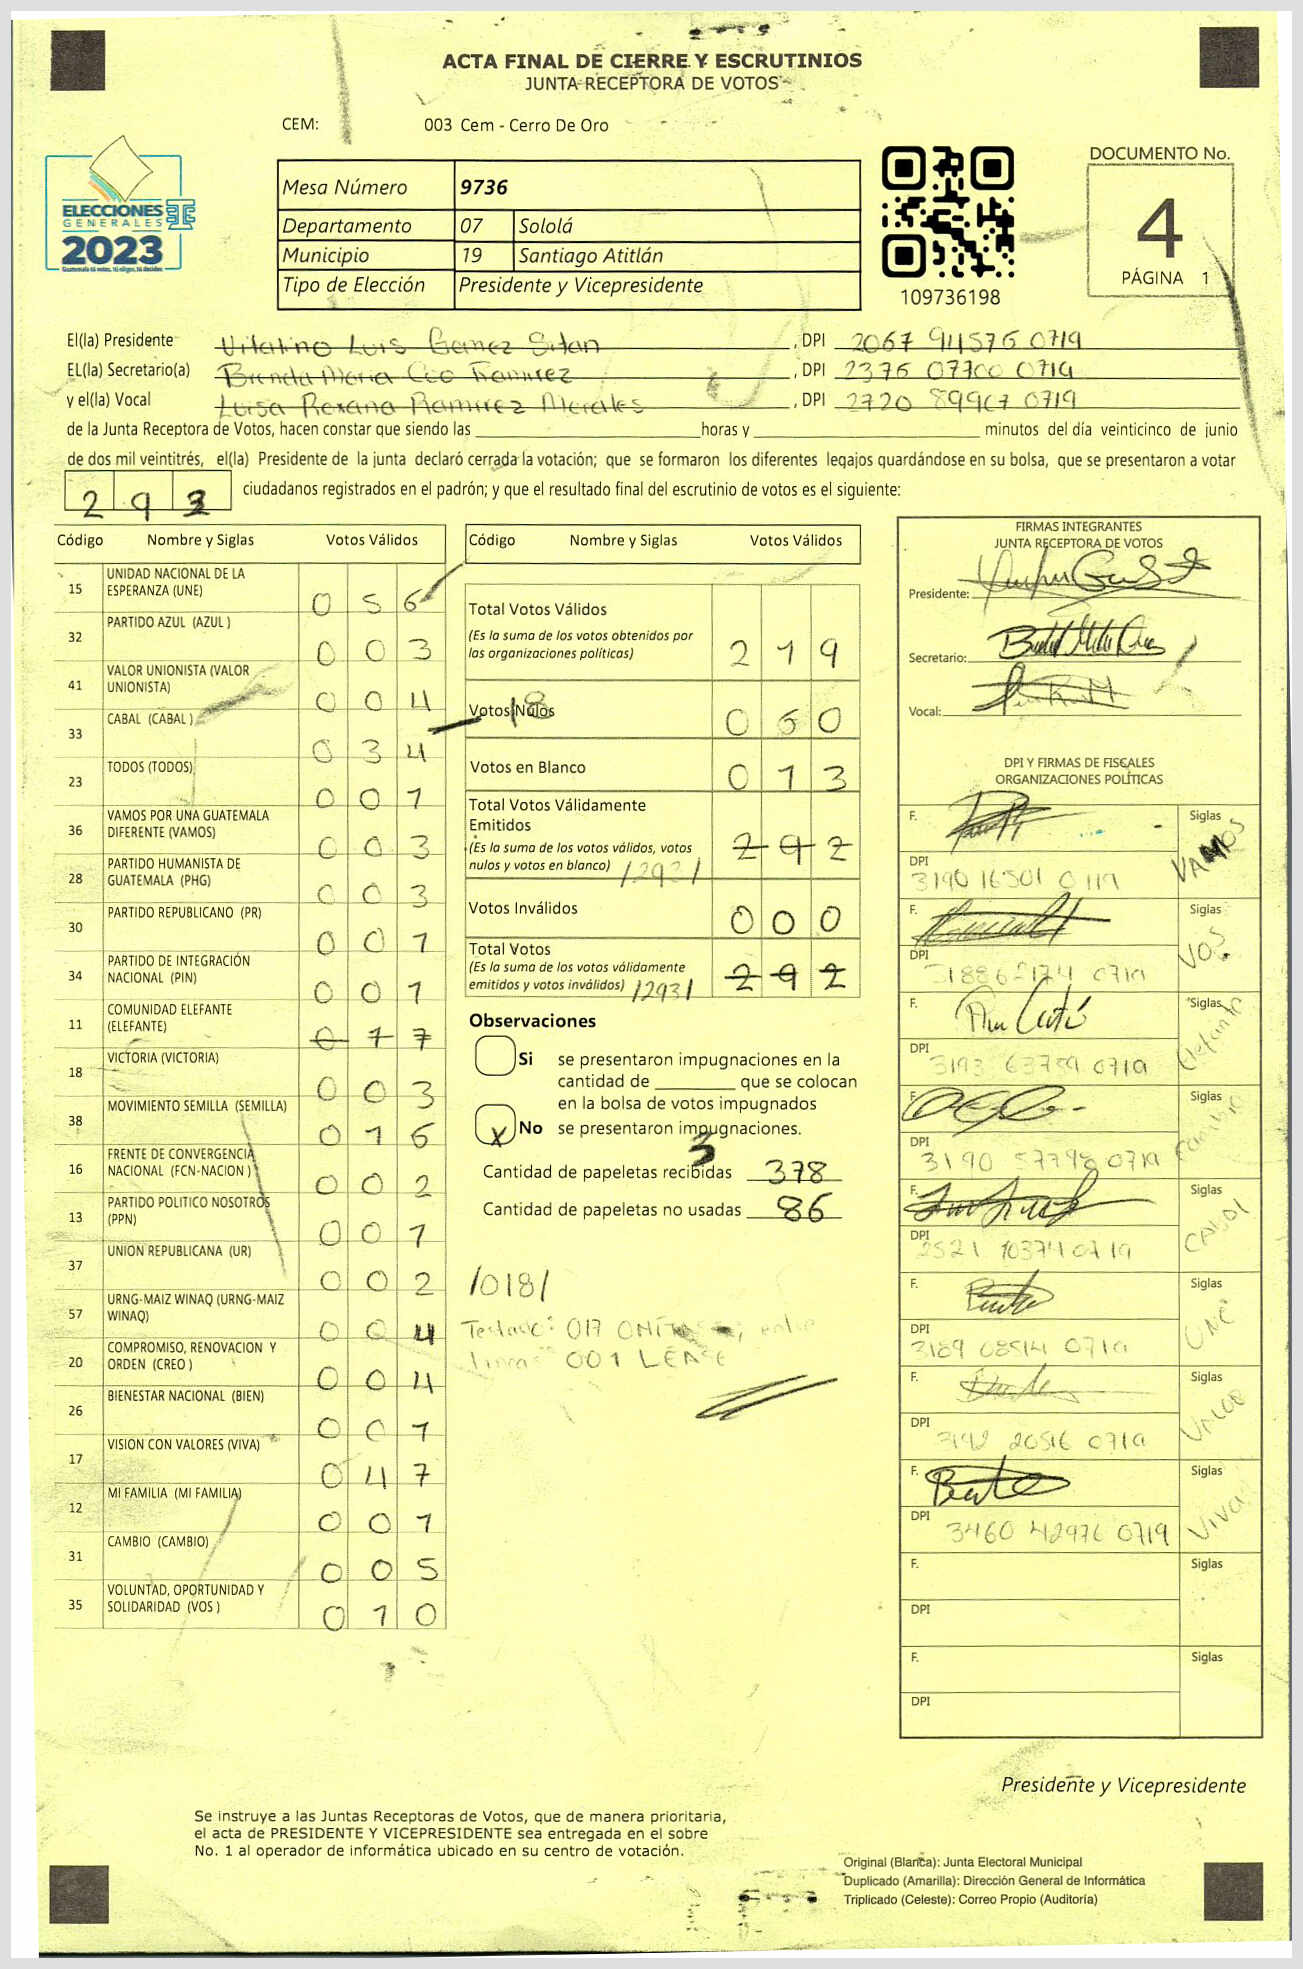 ACTA FINAL DE CIERRE Y ESCRUTINIOS
JUNTA RECEPTORA DE VOTOS
CEM: 003 Cem - Cerro De Oro
ELECCIONES
GENERALES
2023
Mesa Número 9736
Departamento 07 Sololá
Municipio 19 Santiago Atitlán
Tipo de Elección Presidente y Vicepresidente
109736198
DOCUMENTO No.
4
PÁGINA 1
El(la) Presidente Luis Gomez , DPI 2067 0719
EL(la) Secretario(a) Brenda Maria Ramirez , DPI 2376 07700 0719
y el(la) Vocal Luisa Roxana Ramirez Morales , DPI 2720 89967 0719
de la Junta Receptora de Votos, hacen constar que siendo las horas y minutos del día veinticinco de junio
de dos mil veintitrés, el(la) Presidente de la junta declaró cerrada la votación; que se formaron los diferentes legajos quardándose en su bolsa, que se presentaron a votar
293 ciudadanos registrados en el padrón; y que el resultado final del escrutinio de votos es el siguiente:
Código Nombre y Siglas Votos Válidos
15 UNIDAD NACIONAL DE LA ESPERANZA (UNE) 056
32 PARTIDO AZUL (AZUL ) 003
41 VALOR UNIONISTA (VALOR UNIONISTA) 004
33 CABAL (CABAL ) 034
23 TODOS (TODOS) 001
36 VAMOS POR UNA GUATEMALA DIFERENTE (VAMOS) 003
28 PARTIDO HUMANISTA DE GUATEMALA (PHG) 003
30 PARTIDO REPUBLICANO (PR) 001
34 PARTIDO DE INTEGRACIÓN NACIONAL (PIN) 001
11 COMUNIDAD ELEFANTE (ELEFANTE) 017
18 VICTORIA (VICTORIA) 003
38 MOVIMIENTO SEMILLA (SEMILLA) 016
16 FRENTE DE CONVERGENCIA NACIONAL (FCN-NACION ) 002
13 PARTIDO POLITICO NOSOTROS (PPN) 001
37 UNION REPUBLICANA (UR) 002
57 URNG-MAIZ WINAQ (URNG-MAIZ WINAQ) 004
20 COMPROMISO, RENOVACION Y ORDEN (CREO ) 004
26 BIENESTAR NACIONAL (BIEN) 001
17 VISION CON VALORES (VIVA) 047
12 MI FAMILIA (MI FAMILIA) 001
31 CAMBIO (CAMBIO) 005
35 VOLUNTAD, OPORTUNIDAD Y SOLIDARIDAD (VOS ) 010
Código Nombre y Siglas Votos Válidos
Total Votos Válidos 219
(Es la suma de los votos obtenidos por
las organizaciones políticas)
18
Votos Nulos 060
Votos en Blanco 013
Total Votos Válidamente
Emitidos 292
(Es la suma de los votos válidos, votos
nulos y votos en blanco) /293/
Votos Inválidos 000
Total Votos 292
(Es la suma de los votos válidamente
emitidos y votos inválidos) /293/
Observaciones
Si se presentaron impugnaciones en la
cantidad de que se colocan
en la bolsa de votos impugnados
X No se presentaron impugnaciones.
3
Cantidad de papeletas recibidas 378
Cantidad de papeletas no usadas 86
/018/
Testado: 017 entre
lineas 001 LEASE
FIRMAS INTEGRANTES
JUNTA RECEPTORA DE VOTOS
Presidente:
Secretario:
Vocal:
DPI Y FIRMAS DE FISCALES
ORGANIZACIONES POLÍTICAS
F. Siglas VAMOS
DPI 3190 16501 0719
F. Siglas VOS
DPI 0719
F. Siglas Elefante
DPI 3193 63759 0719
F. Siglas Cambio
DPI 3190 57798 0719
F. Siglas CABAL
DPI 2521 10374 0719
F. Siglas UNE
DPI 3189 08514 0719
F. Siglas VALOR
DPI 3192 20516 0719
F. Siglas VIVA
DPI 3460 42976 0719
F. Siglas
DPI
F. Siglas
DPI
Presidente y Vicepresidente
Se instruye a las Juntas Receptoras de Votos, que de manera prioritaria,
el acta de PRESIDENTE Y VICEPRESIDENTE sea entregada en el sobre
No. 1 al operador de informática ubicado en su centro de votación.
Original (Blanca): Junta Electoral Municipal
Duplicado (Amarilla): Dirección General de Informática
Triplicado (Celeste): Correo Propio (Auditoría)